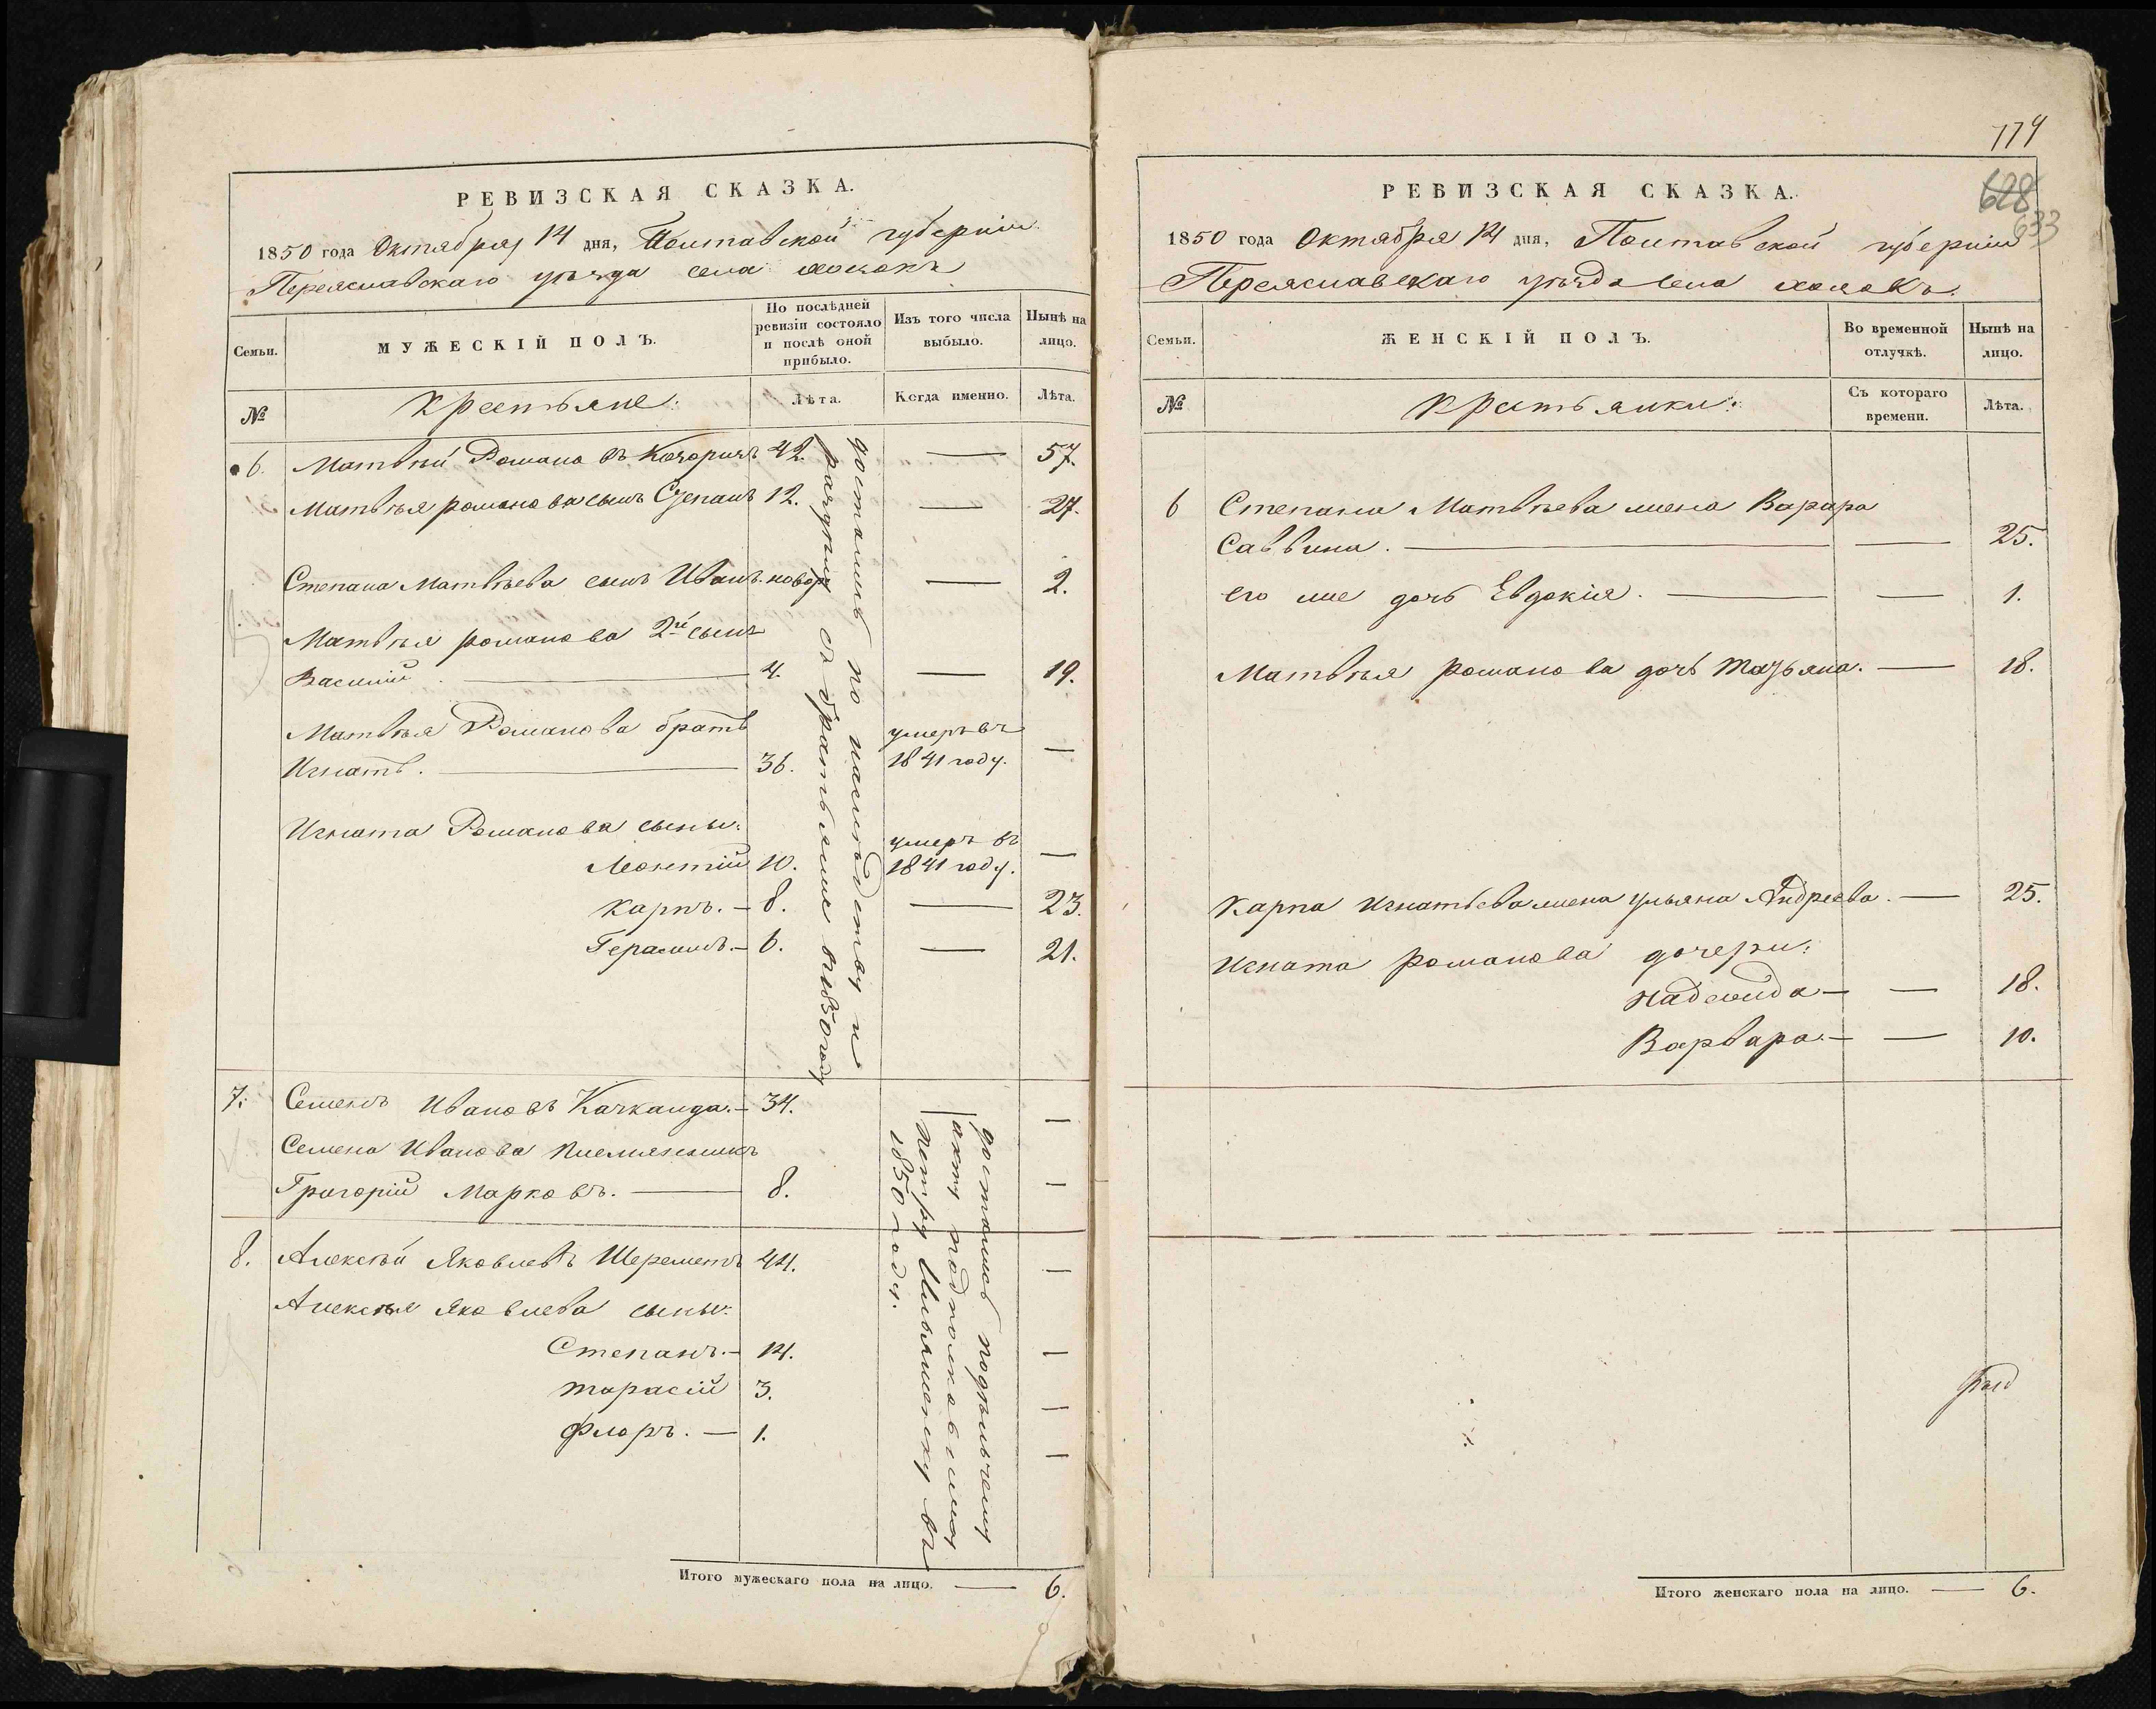 РЕВИЗСКАЯ СКАЗКА.
1850 года Октября 14 дня, Полтавской губерніи
Переяславскаго уѣзда села хоцокъ
Семьи.
МУЖЕСКІЙ ПОЛЪ.
По послѣдней
ревизіи состояло
и послѣ оной
прибыло.
Изъ того числа
выбыло.
Нынѣ на
лицо.
№
Крестьяне:
Лѣта.
Когда именно.
Лѣта.
6. Матвѣй Романовъ 42. — 57.
Матвѣя романова сынъ Степанъ 12. — 27.
Степана Матвѣева сынъ Иванъ новор — 2.
Матвѣя романова 2й сынъ
Василій. — 4. — 19.
Матвѣя Романова братъ
Игнатъ. — 36. умеръ въ 1841 году. —
Игната Романова сыны:
Леонтій 10. умеръ въ 1841 году. —
Карпъ. — 8. — 23.
Герасимъ. — 6. — 21.
достались по наслѣдству и
раздѣлу съ братьями въ 1850 году
7. Семенъ Ивановъ Качканда. — 34. —
Семена Иванова племянникъ
Григорій Марковъ. — 8. —
8. Алексѣй Яковлевъ Шереметъ 44. —
Алексѣя Яковлева сыны:
Степанъ. — 14. —
тарасій 3. —
Флоръ. — 1. —
достались подѣльчему
акту подполковнику
Петру Ильяшенку въ
1850 году.
Итого мужескаго пола на лицо. — 6.
174
628
633
РЕВИЗСКАЯ СКАЗКА.
1850 года Октября 14 дня, Полтавской губерніи
Переяславскаго уѣзда села хоцокъ.
Семьи.
ЖЕНСКІЙ ПОЛЪ.
Во временной
отлучкѣ.
Нынѣ на
лицо.
№
Крестьянки:
Съ котораго
времени.
Лѣта.
6 Степана Матвѣева жена Варара
Саввина. — — 25.
его же дочь Евдокія. — — 1.
Матвѣя романова дочь татьяна. — 18.
Карпа Игнатьева жена ульяна Андреева. — 25.
Игната романова дочери:
надежда — — 18.
Варвара. — — 10.
Итого женскаго пола на лицо. — 6.